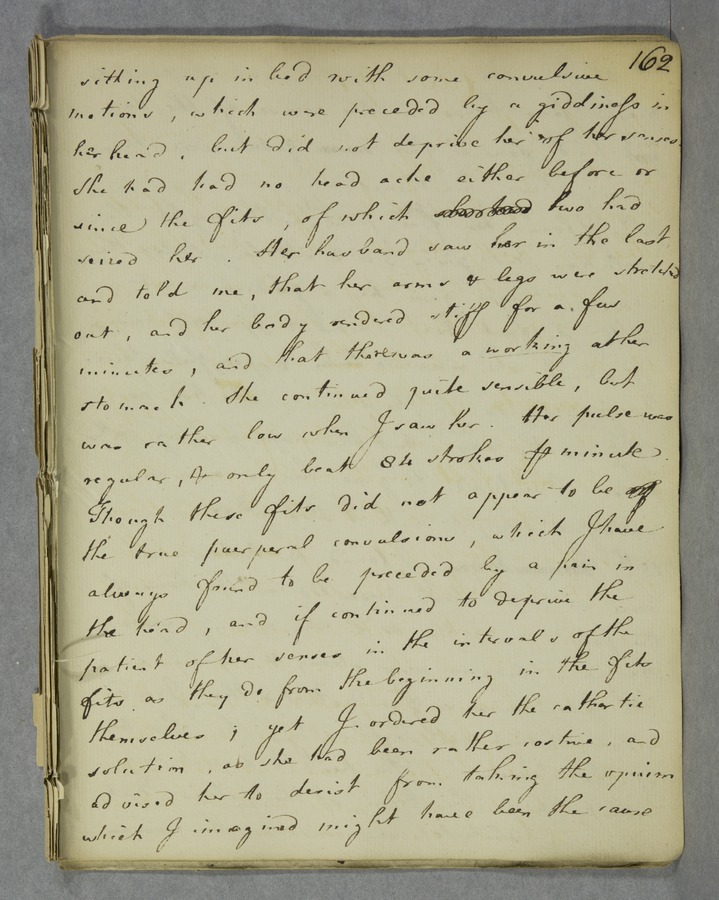 162
sitting up in bed with some convulsive
motions, which were preceded by a giddiness in
her head, but did not deprive her of her senses.
She had had no head ache either before or
since the fits, of which two had
seized her. Her husband saw her in the last
and told me, that her arms & legs were stretched
out, and her body rendered stiff for a few
minutes, and that there was a working at her
stomach. She continued quite sensible, but
was rather low when I saw her. Her pulse was
regular, & only beat 84 strokes minute.
Though these fits did not appear to be
the true puerperal convulsions, which I have
always found to be preceded by a pain in
the head, and if continued to deprive the
patient of her senses in the intervals of the
fits as they do from the beginning in the fits
themselves; yet I ordered her the cathartic
solution, as she had been rather costive, and
advised her to desist from taking the opium
which I imagined might have been the cause